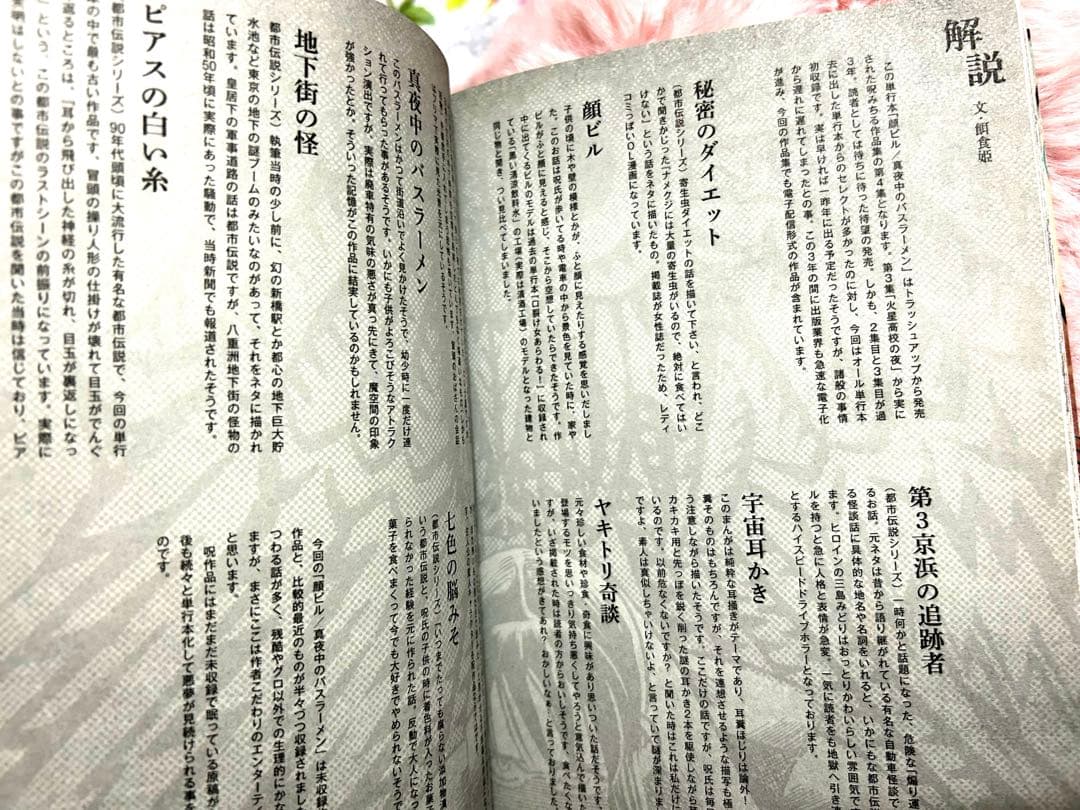 解説
文・餌食姫
この単行本「顔ビル/真夜中のバスラーメン」はトラッシュアップから発売
された呪みちる作品集の第4集となります。第3集「火星高校の夜」から実に
3年。読者としては待ちに待った待望の発売。しかも、2集目と3集目が過
去に出した単行本からのセレクトが多かったのに対し、今回はオール単行本
初収録です。実は早ければ一昨年に出る予定だったそうですが、諸般の事情
から遅れに遅れてしまったとの事。この3年の間に出版業界も急速な電子化
が進み、今回の作品集でも電子配信形式の作品が含まれています。
秘密のダイエット
(都市伝説シリーズ)寄生虫ダイエットの話を描いて下さい、と言われ、どこ
かで聞きかじった「ナメクジには大量の寄生虫がいるので、絶対に食べてはい
けない」という話をネタに描いたもの。掲載誌が女性誌だったため、レディ
コミっぽいOL漫画になっています。
顔ビル
子供の頃に木や壁の模様とかが、ふと顔に見えたりする感覚を思いだしまし
た。このお話は呪氏が歩いてる時や電車の中から景色を見ていた時に、家や
ビルがふと顔に見えると感じ、そこから空想していたらできたそうです。作
中に出てくるビルのモデルは過去の単行本「口裂け女あらわる!」に収録され
ている「黒い清涼飲料水」の工場(実際は清酒工場)のモデルとなった建物と
同じ物と聞き、つい見比べてしまいました。
第3京浜の追跡者
(都市伝説シリーズ)一時何かと話題になった、危険な「煽り運
るお話。元ネタは昔から語り継がれている有名な自動車怪談で
る怪談話に具体的な地名や名詞をいれると、いかにもな都市伝
ます。ヒロインの三島みどりはおっとりかわいらしい雰囲気で
ルを持つと急に人格と表情が急変。一気に読者をも地獄へ引き
とするハイスピードドライブホラーとなっております。
宇宙耳かき
このまんがは純粋な耳掻きがテーマであり、耳糞ほじりは論外!
糞そのものはもちろんですが、それを連想させるような描写も極
う注意しながら描いたそうです。ここだけの話ですが、呪氏は毎
カキカキ用と先っぽを鋭く削った謎の耳かき2本を駆使しながら
いるのです。以前危なくないですか?と聞いた時はこれは私だけに
ですよ、素人は真似しちゃいけないよ、と言っていて謎が深まります
ヤキトリ奇談
元々珍しい食材や珍食、奇食に興味があり思いついた話だそうです。
登場するモツを思いっきり気持ち悪くしてやろうと意気込んで描いた
すが、いざ掲載された時は読者の方からおいしそうです、食べたくな
いましたという感想がきてあれ?おかしいなぁ!と言っておりました。
真夜中のバスラーメン
このバスラーメンはかつて街道沿いでよく見かけたそうで、幼少時に一度だけ連
れて行ってもらった事があるそうです。いかにも子供がよろこびそうなアトラク
ション演出ですが、実際は廃車特有の気味の悪さが真っ先にきて、魔空間の印象
が強かったとか。そういった記憶がこの作品に結実しているのかもしれません。
地下街の怪
(都市伝説シリーズ)執筆当時の少し前に、幻の新橋駅とか都心の地下巨大貯
水池など東京の地下の謎ブームのみたいなのがあって、それをネタに描かれ
ています。皇居下の軍事道路の話は都市伝説ですが、八重洲地下街の怪物の
話は昭和50年頃に実際にあった騒動で、当時新聞でも報道されたそうです。
ピアスの白い糸
都市伝説シリーズ)90年代頭頃に大流行した有名な都市伝説で、今回の単行
の中で最も古い作品です。冒頭の操り人形の仕掛けが壊れて目玉がでんぐ
返るところは、「耳から飛び出した神経の糸が切れ、目玉が裏返しになっ
という、この都市伝説のラストシーンの前振りになっています。実際に
失明はしないとの事ですがこの都市伝説を聞いた当時は信じており、ピア
七色の脳みそ
(都市伝説シリーズ)「いつまでたっても腐らない添加物満
いう都市伝説と、呪氏の子供の時に着色料が入ったお菓
られなかった経験を元に作られた話。反動で大人になっ
菓子を食べまくって今でも大好きでやめられないそうで
今回の「顔ビル/真夜中のバスラーメン」は未収録
作品と、比較的最近のものが半々づつ収録されまし
つわる話が多く、残酷やグロ以外での生理的にかな
ますが、まさにここは作者こだわりのエンターティ
と思います。
呪作品にはまだまだ未収録で眠っている原稿が
後も続々と単行本化して悪夢が見続けられる事を
のです。